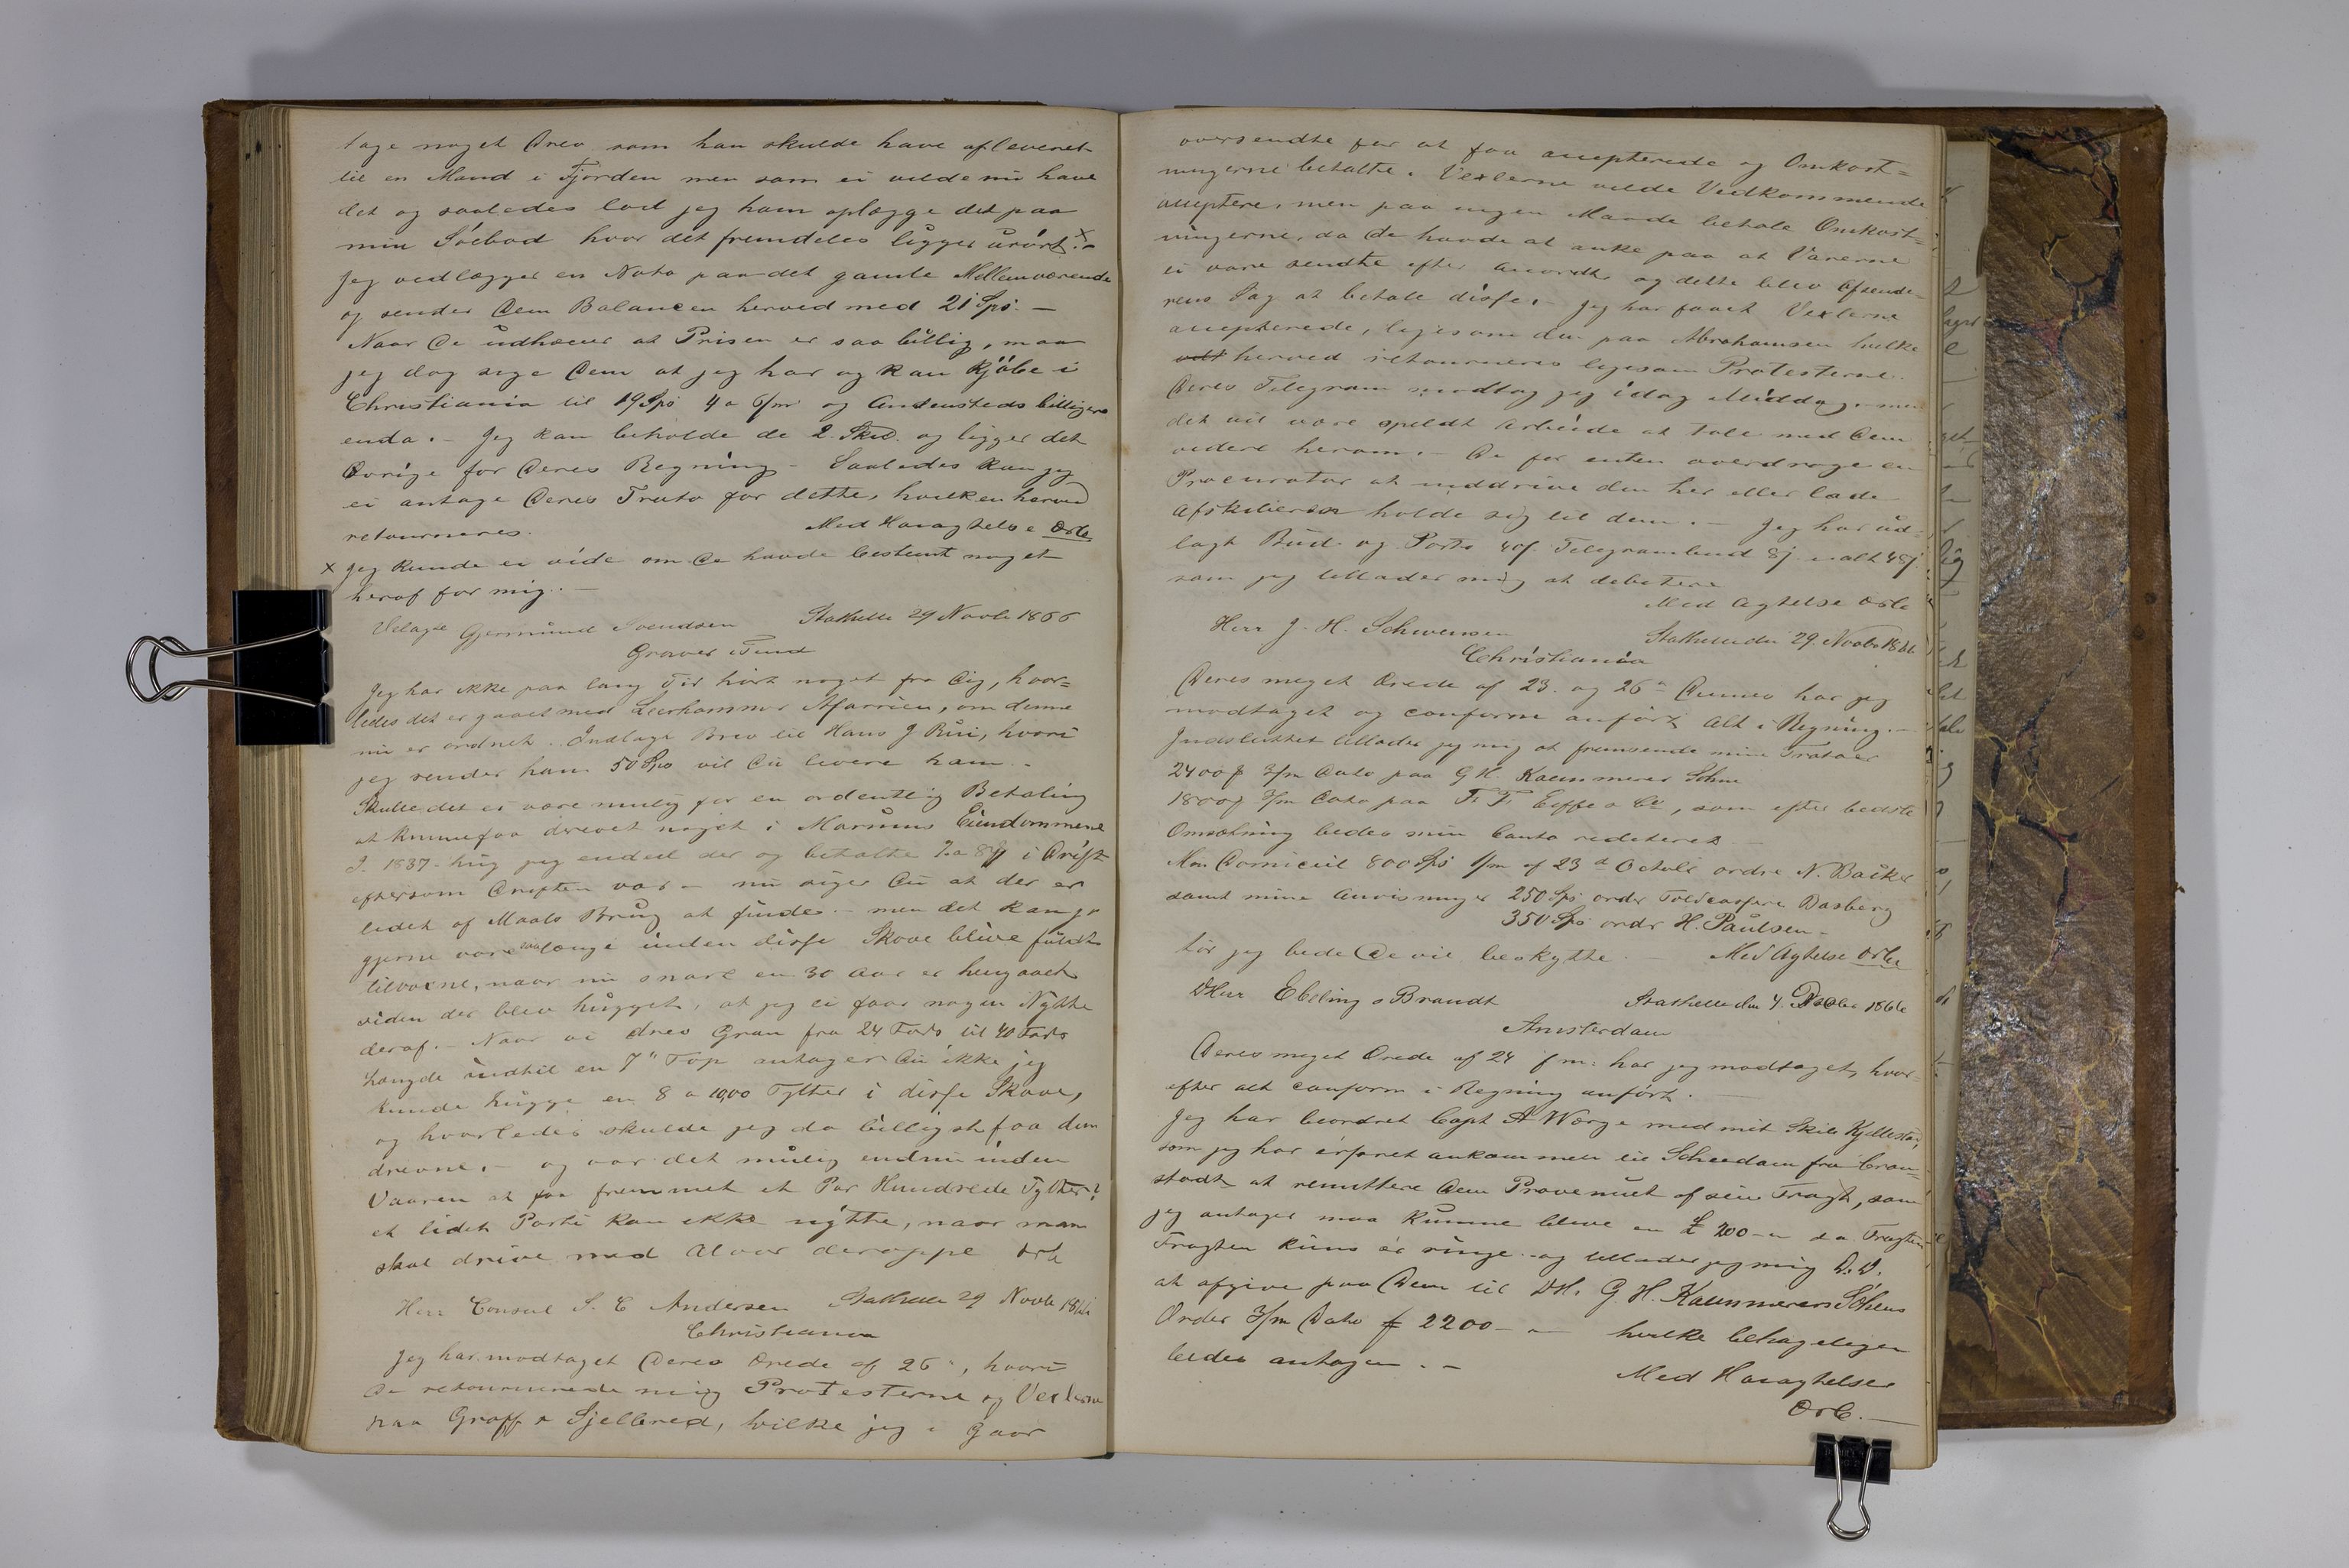 tage noget Brev som han skulde have afleveret
til en Mand i Fjorden men som ei vilde nu have
det og saaledes lod jeg ham oplægge det paa
min Söebod hvor det fremdeles ligger urört. x
Jeg vedlægger en Nota paa det gamle Mellemværende
og sender Dem Balancen herved med 21 Spd. —
Naar De udhæver at Prisen er saa billig, maa
jeg dog sige Dem at jeg har og kan kjöbe i
Christiania til 19 Spd 4 a 6/m og Andensteds billigere
enda. — Jeg kan beholde de 2 og ligger det
Övrige for Deres Regning — Saaledes kan jeg
ei antage Deres Tratta for dette, hvilken herved
retourneres. Med Høiagtelse OrlC
x Jeg kunde ei vide om De havde bestemt noget
heraf for mig. —
Gjermund Svendsen Stathelle 29 Novbr 1866
Graver Tind
Jeg har ikke paa lang Tid hört noget fra Dig, hvor=
ledes det er gaaet med Leerhammer Affairien, om denne
nu er ordnet. Indlagte Brev til Hans J Rui, hvori
jeg sender ham 50 Spd vil Du levere ham. —
Skulde det ei være mulig for en ordentlig Betaling
at kunne faa drevet noget i Eiendommene
I 1837 hug jeg endeel der og betalte 7 a 8 i Drift
eftersom Driften var — nu siger Du at der er
lidet af Maals Brug at finde. — men det kan jo
gjerne være saalænge inden disse Skove blive fuldt
tilvoxne, naar nu snart en 30 Aar er hengaaet
siden der blev hugget, at jeg ei faar nogen Nytte
deraf. — Naar vi drev Gran fra 24 Fods til 40 Fods
Længde indtil en 7" Top antager Du ikke jeg
kunde hugge en 8 a 1000 Tylter i disse Skove,
og hvorledes skulde jeg da billigst faa dem
drevne. — og var det mulig endnu inden
Vaaren at faa fremmet et Par Hundrede Tylter?
et lidet Parti kan ikke nytte, naar man
skal drive med Alvor deroppe OrlC
Herr Consul S. C Andersen Stathelle 29 Novbr 1866
Christiania
Jeg har modtaget Deres Ærede af 26", hvori
De retournerede mig Protesterne og Vexlerne
paa Graff & Sjelbred, hvilke jeg i Gaar
oversendte for at faa accepterede og Omkost=
ningerne betalte. Vexlerne vilde Vedkommende
acceptere, men paa ingen Maade betale Omkost=
ningerne, da de havde at anke paa at Varerne
ei vare sendte efter Accordt og dette blev Afsende=
rens Sag at betale disse. — Jeg har faaet Vexlerne
accepterede, ligesom den paa Abrahamsen hvilke
herved retourneres ligesom Protesterne.
Deres Telegram modtog jeg idag Middag — men
det vil være spildt Arbeide at tale med Dem
videre herom. — De faar enten overdrage en
Procurator at inddrive den her eller lade
Afskiberen holde sig til dem. — Jeg har ud=
lagt Bud og Porto 40ß Telegrambud 8ß ialt 48ß
som jeg tillader mig at debitere
Med Agtelse OrlC
Herr J. H. Schwensen Stathelle den 29. Novbr 1866
Christiania
Deres meget Ærede af 23 og 26" Dennes har jeg
modtaget og conform anfört Alt i Regning. —
Indsluttet tillader jeg mig at fremsende mine Trattaer
2400 3/m Dato paa G H. Kaemmerer Sohne
1800 3/m Dato paa F. F. Eiffe & Co, som efter bedste
Omsætning bedes min Conto rediteret
Min Domicil 800 Spd 1/m af 23d Octobr ordre N. Backer
samt mine Anvisninger 250 Spd ordre Toldcasserer Dasberg
350 Spd ordr H. Paulsen —
tör jeg bede De vil beskytte. — Med Agtelse OrlC
DHerr Ebeling & Brandt Stathelle den 4. Decbr 1866
Amsterdam
Deres meget Ærede af 24 f m: har jeg modtaget, hvor=
efter alt conform i Regning anfört. —
Jeg har beordret Capt A Worge med mit Skib Kjellestad,
som jeg har erfaret ankommen til Schiedam fra Cron=
stadt at remittere Dem Provenuet af sin Fragt, som
jeg antager maa kunne blive en £ 200 — da Fragten
Fragten kuns er ringe — og tillader jeg mig D. D.
at afgive paa Dem til DH. G. H. Kaemmerers Söhns
Order 3/m Dato f 2200 — hvilke behageligen
bedes antagen. —
Med Høiagtelse
OrlC. —